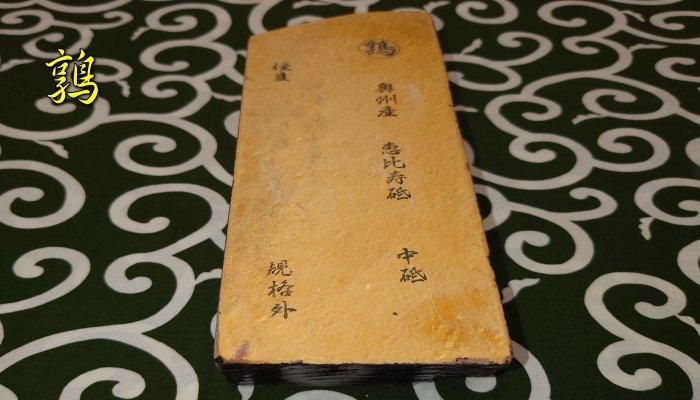 鶉
鶉
奥州産 恵比寿砥 中砥
規格外